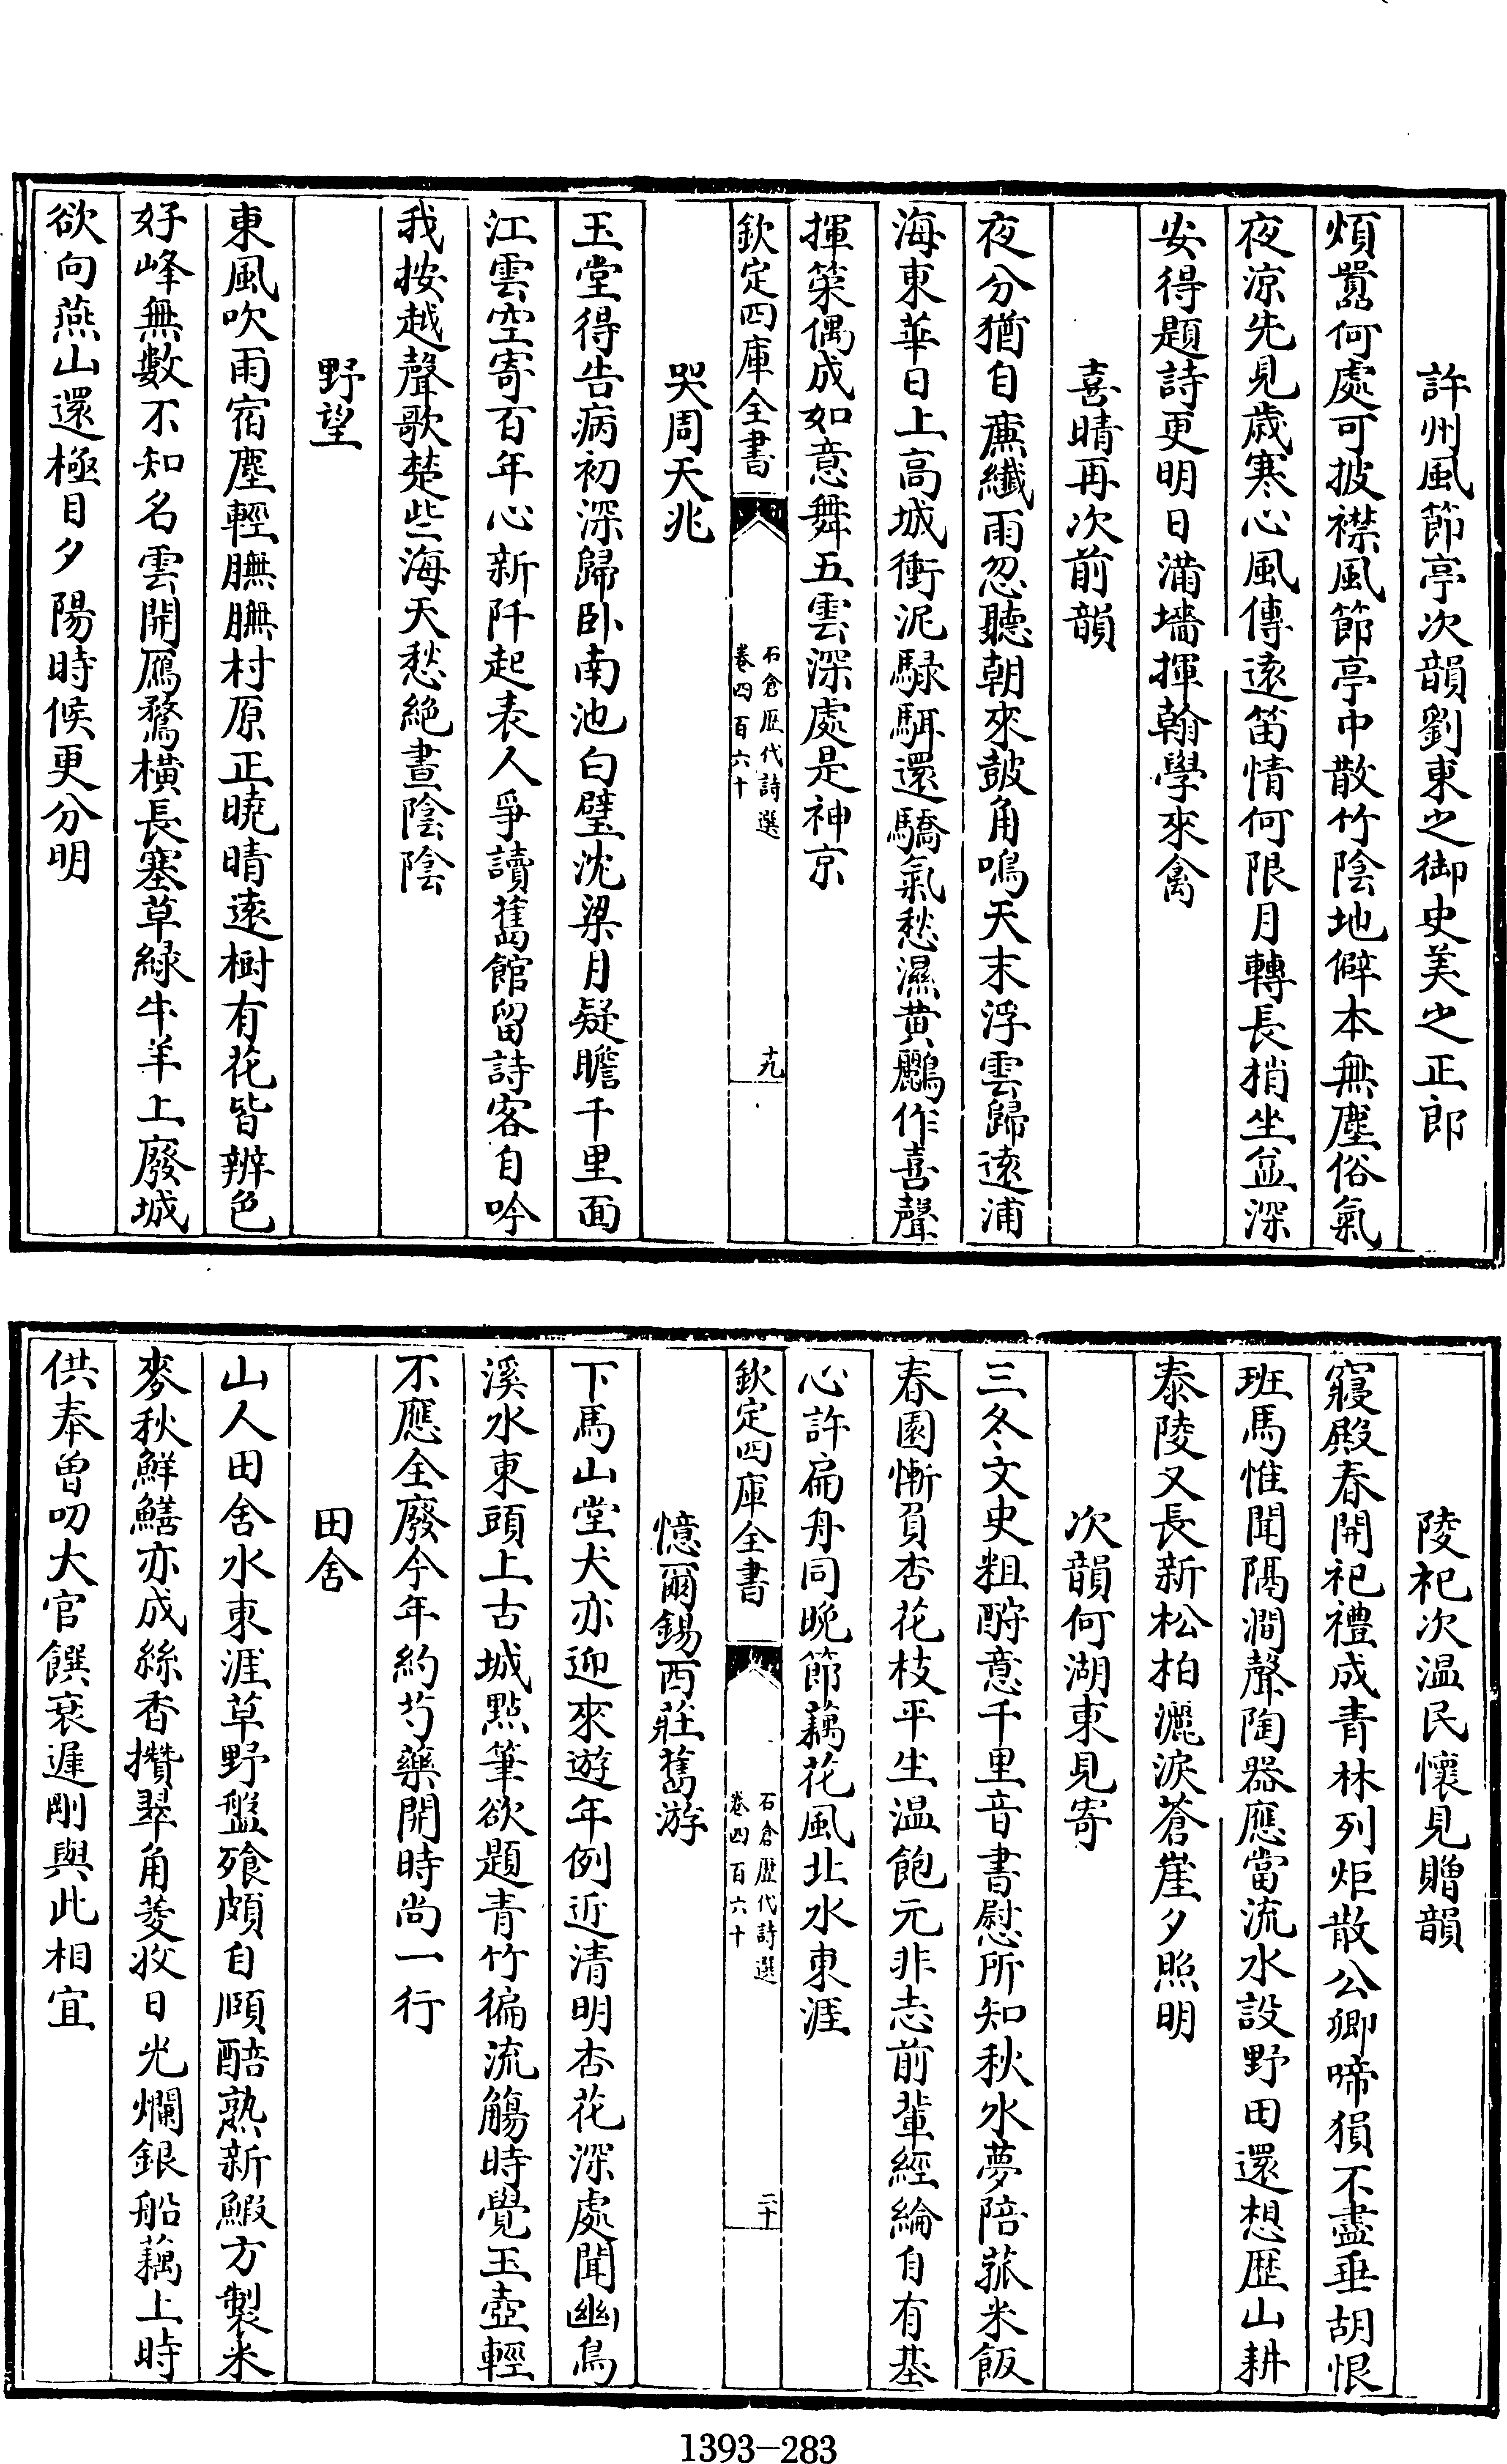 許州風節亭次韻劉東之御史美之正郎
煩囂何處可披襟風節亭中散竹陰地僻本無塵俗氣
夜涼先見歲寒心風傳遠笛情何限月轉長梢坐益深
安得題詩更明日滿墻揮翰學來禽
喜晴再次前韻
夜分猶自廉纖雨忽聽朝來鼓角鳴天末浮雲歸遠浦
海東華日上高城衝泥騄駬還驕氣愁濕黃鸝作喜聲
揮策偶成如意舞五雲深處是神京
欽定四庫全書
石倉歷代詩選
卷四百六十
十九
哭周天兆
玉堂得告病初深歸卧南池白璧沈梁月疑瞻千里面
江雲空寄百年心新阡起表人爭讀舊館留詩客自吟
我按越聲歌楚些海天愁絕晝陰陰
野望
東風吹雨宿塵輕膴膴村原正曉晴遠樹有花皆辨色
好峰無數不知名雲開鴈鶩橫長塞草綠牛羊上廢城
欲向燕山還極目夕陽時候更分明
陵祀次溫民懷見贈韻
寢殿春開祀禮成青林列炬散公卿啼猿不盡垂胡恨
班馬惟聞隔澗聲陶器應當流水設野田還想歷山耕
泰陵又長新松柏灑淚蒼崖夕照明
次韻何湖東見寄
三冬文史粗酧意千里音書慰所知秋水夢陪菰米飯
春園慚負杏花枝平生溫飽元非志前輩經綸自有基
心許扁舟同晚節藕花風北水東涯
欽定四庫全書
石倉歷代詩選
卷四百六十
二十
憶爾錫西莊舊游
下馬山堂犬亦迎來遊年例近清明杏花深處聞幽鳥
溪水東頭上古城點筆欲題青竹徧流觴時覺玉壺輕
不應全廢今年約芍藥開時尚一行
田舍
山人田舍水東涯草野盤飱頗自頤醅熟新鰕方製米
麥秋鮮鱔亦成絲香攢翠角菱收日光爛銀船藕上時
供奉曾叨大官饌衰遲剛與此相宜
1393-283